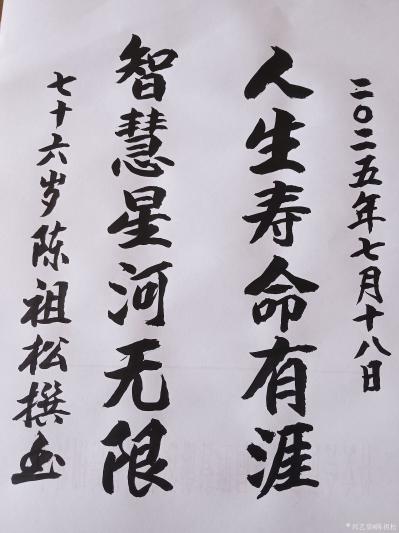 二〇二五年七月十八日
人生寿命有涯
智慧星河无限
七十六岁陈祖松撰